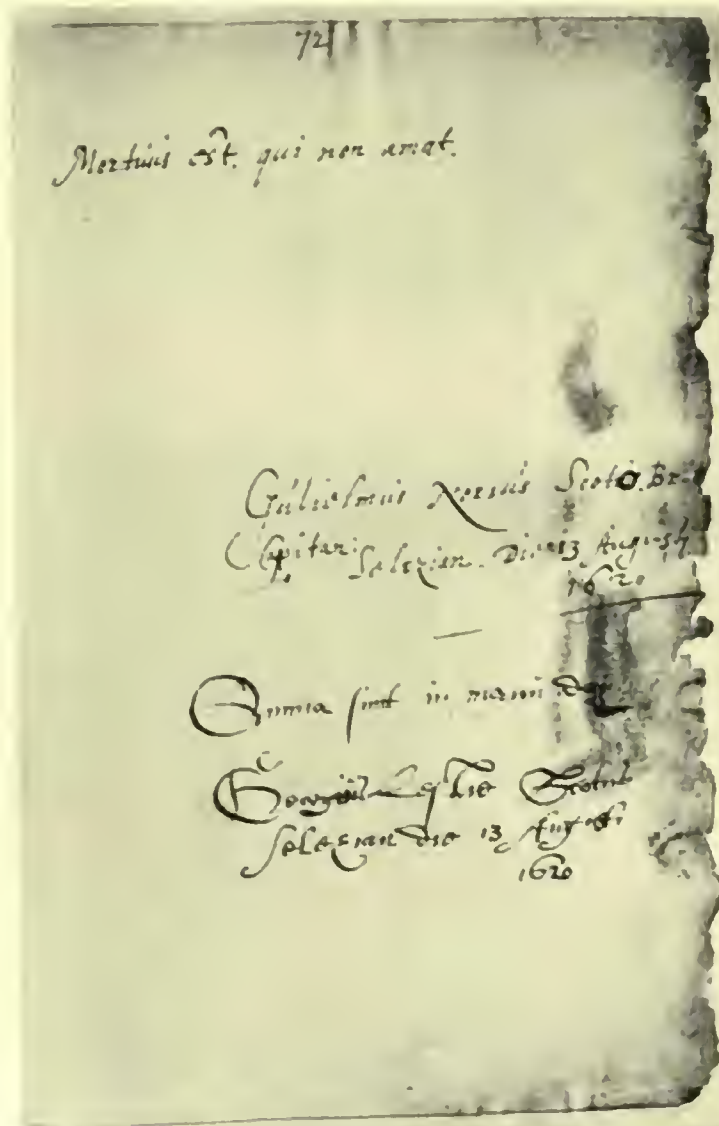 72
Mortuus est. qui non amat.
Gulielmus Scotus. Br
Capitan: Selezian. Die 13 Augusty
1620
Omnia sunt in manu dei
Scotus
Selezian die 13 Augusti
1620